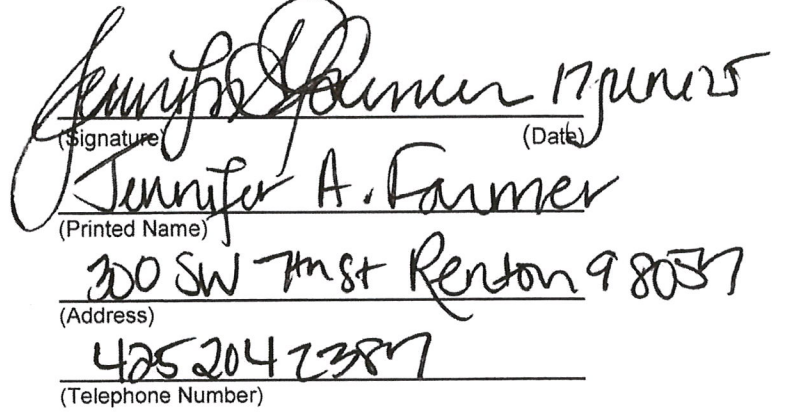 Jennifer A Farmer 17 June 25
(Signature) (Date)
Jennifer A. Farmer
(Printed Name)
300 SW 7th St Renton 98057
(Address)
425 204 2387
(Telephone Number)